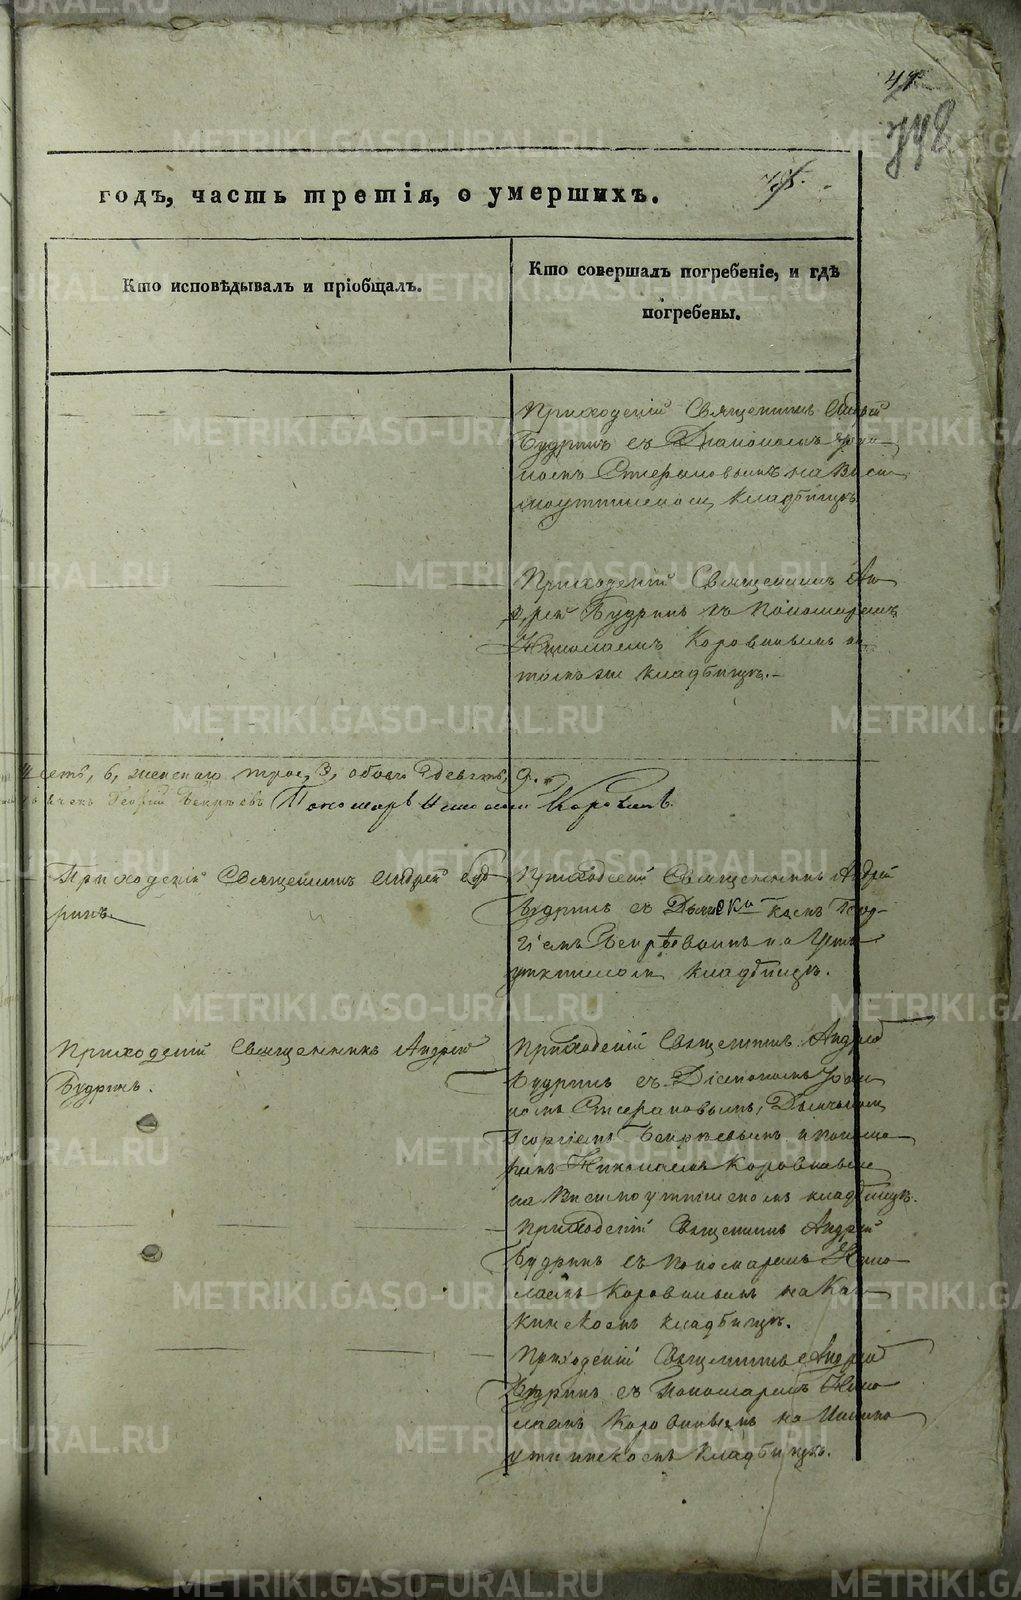 748
годъ, часть третія, о умершихъ.
Кто исповѣдывалъ и пріобщалъ.
Кто совершалъ погребеніе, и гдѣ
погребены.
Приходскій Священникъ Андрей
Будринъ съ Діакономъ Іоан
номъ Стефановымъ на Висы
моуткинскомъ кладбищѣ
Приходскій Священникъ Ан
дрей Будринъ съ Пономаремъ
Николаемъ Коровинымъ на
томъ же кладбищѣ.
6, женскаго трое, 3, обоего девять, 9.
Георгій Пономарь Николай Коровинъ
Приходскій Священникъ Андрей Буд
ринъ.
Приходскій Священникъ Андрей
Будринъ съ Дьячкомъ Геор
гіемъ на Усть
уткинскомъ кладбищѣ.
Приходскій Священникъ Андрей
Будринъ.
Приходскій Священникъ Андрей
Будринъ съ Діакономъ Іоан
номъ Стефановымъ, Дьячкомъ
Георгіемъ и понома
ремъ Николаемъ Коровинымъ
на Висимоуткинскомъ кладбищѣ.
Приходскій Священникъ Андрей
Будринъ съ пономаремъ Нико
лаемъ Коровинымъ на Ка
кинскомъ кладбищѣ.
Приходскій Священникъ Андрей
Будринъ съ Пономаремъ Нико
лаемъ Коровинымъ на
уткинскомъ кладбищѣ.
METRIKI.GASO-URAL.RU